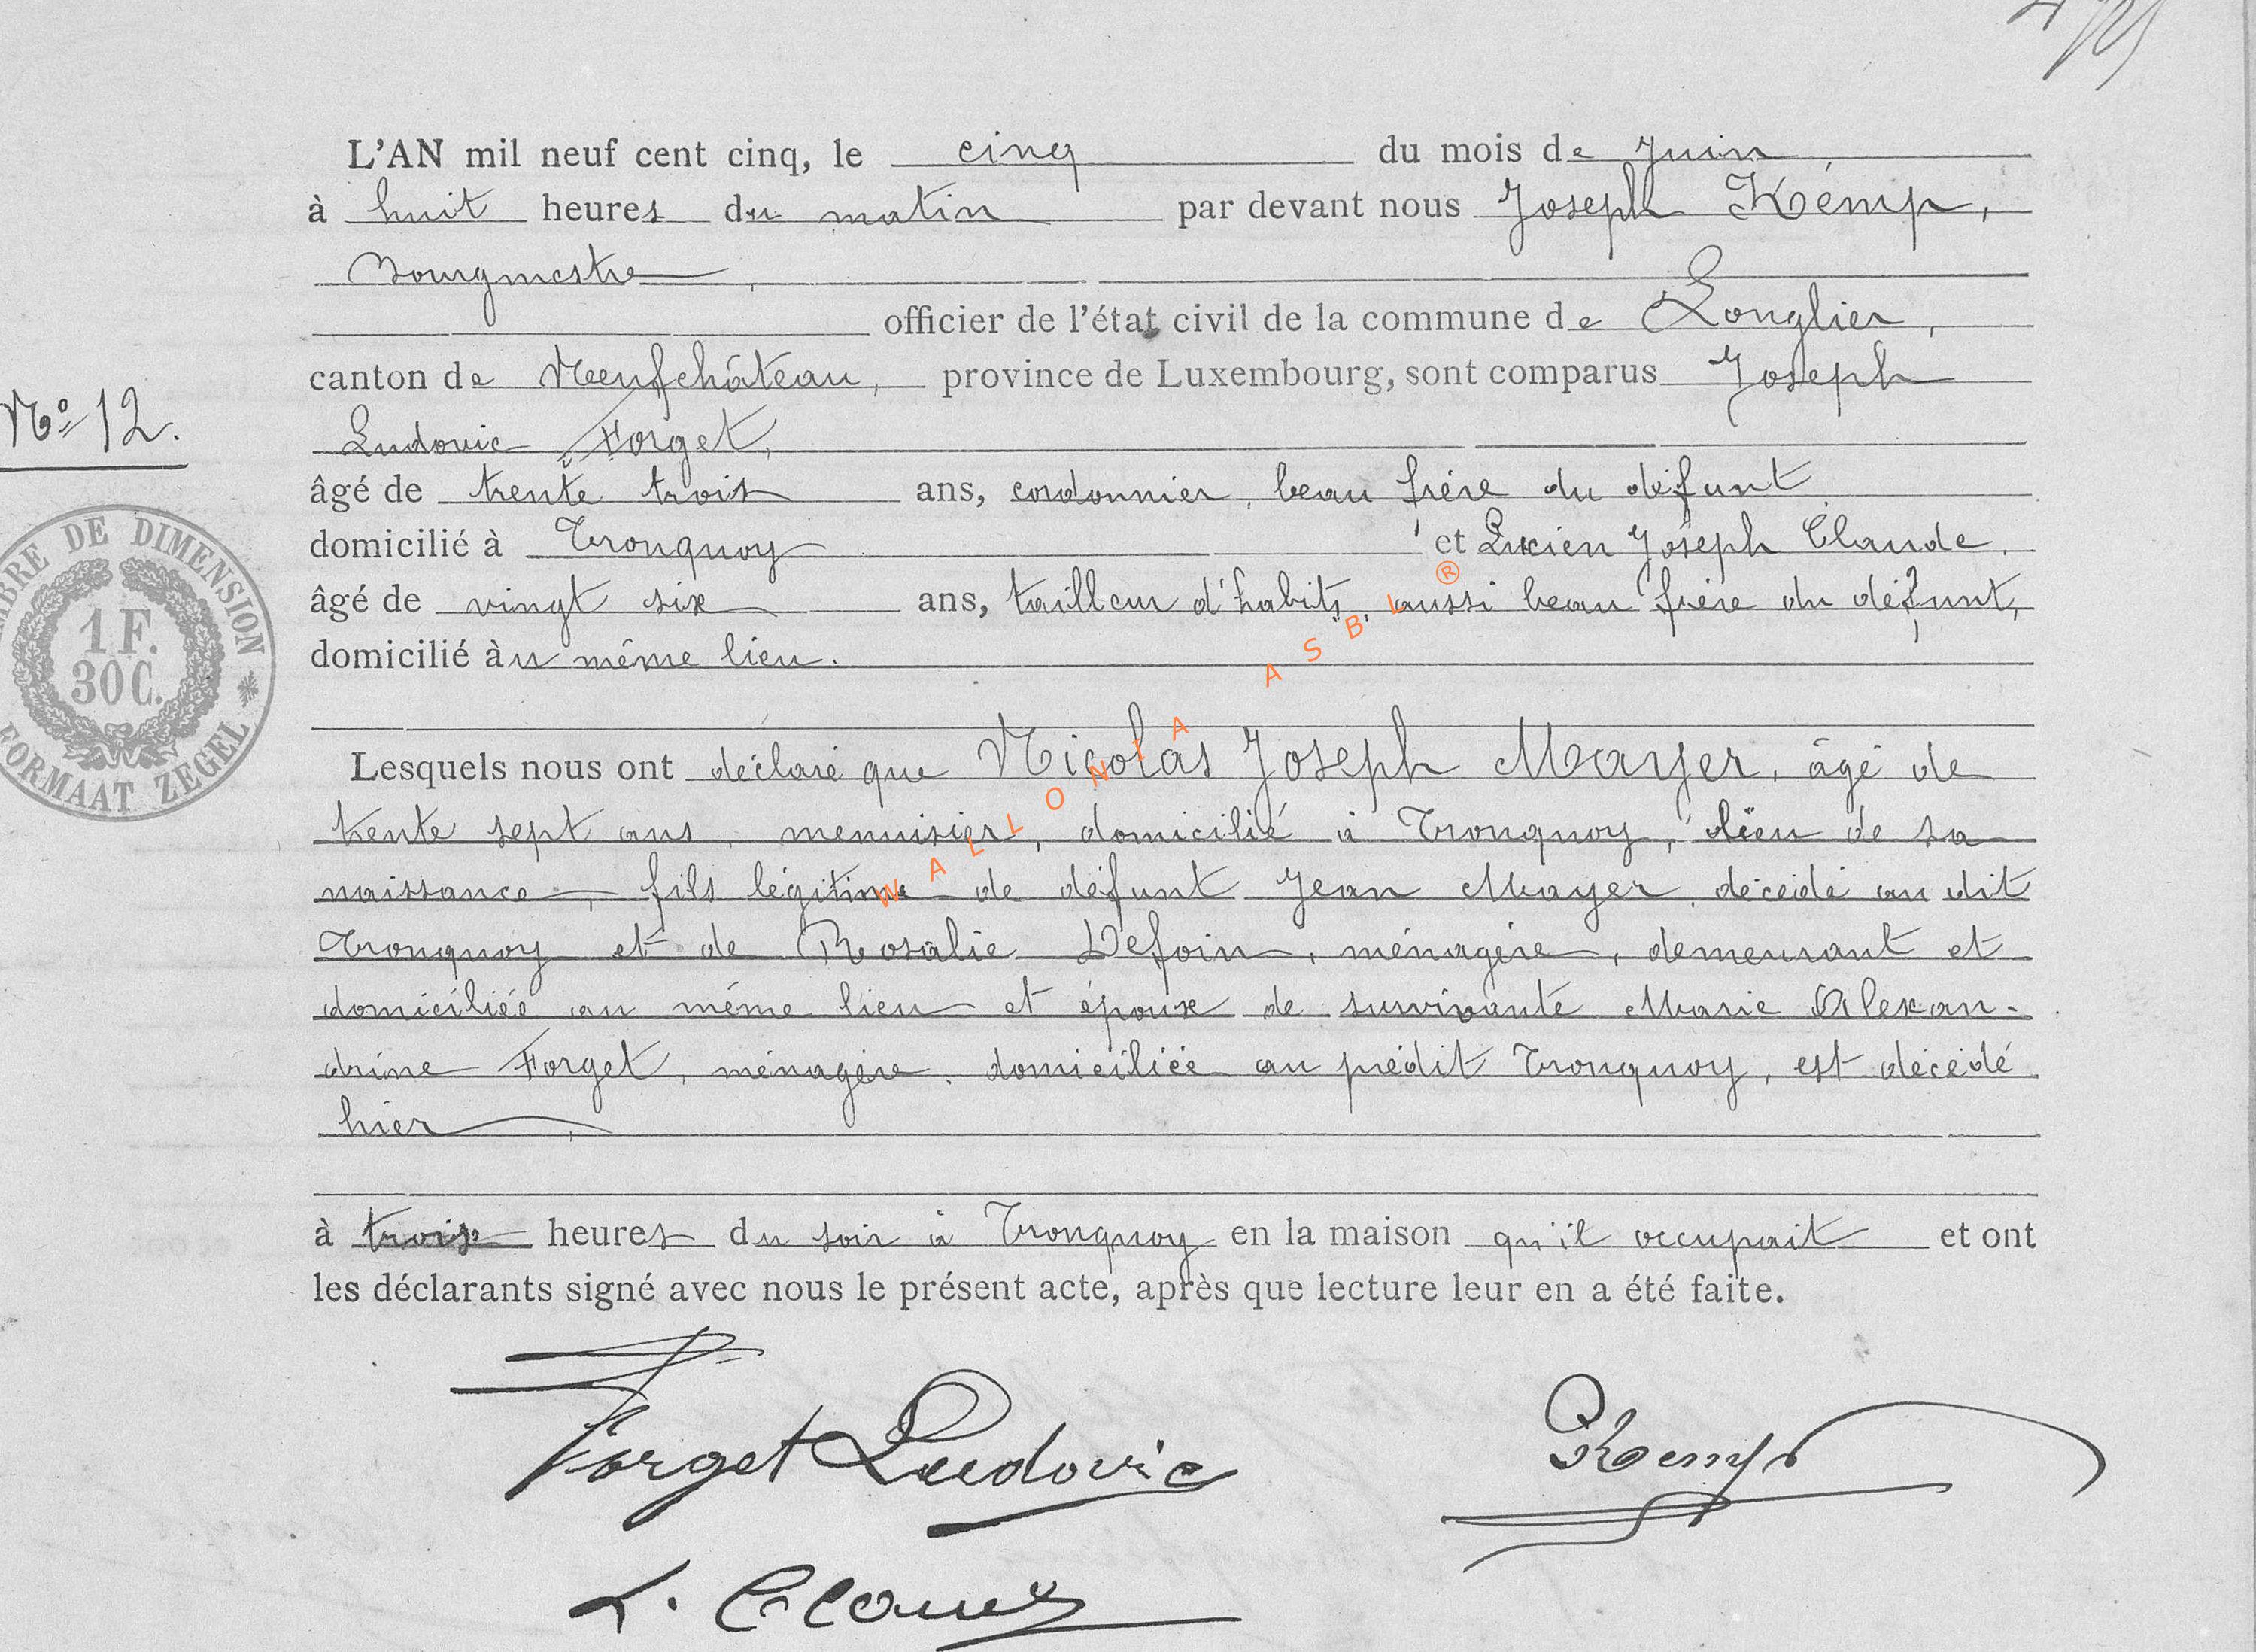 L'AN mil neuf cent cinq, le cinq du mois de Juin,
à huit heures du matin par devant nous Joseph Kemp,
Bourgmestre,
officier de l'état civil de la commune de Longlier,
canton de Neufchâteau, province de Luxembourg, sont comparus Joseph
Nº 12.
Ludovic Forget,
âgé de trente trois ans, cordonnier, beau frère du défunt,
domicilié à Tronquoy et Lucien Joseph Claude,
âgé de vingt six ans, tailleur d'habits, aussi beau frère du défunt,
domicilié au même lieu.
TIMBRE DE DIMENSION
1 F.
30 C.
FORMAAT ZEGEL
Lesquels nous ont déclaré que Nicolas Joseph Mayer, âgé de
trente sept ans, menuisier, domicilié à Tronquoy, lieu de sa
naissance, fils légitime de défunt Jean Mayer, décédé au dit
Tronquoy et de Rosalie Defoin, ménagère, demeurant et
domiciliée au même lieu et époux de survivante Marie Alexan-
drine Forget, ménagère, domiciliée au prédit Tronquoy, est décédé
hier,
à trois heures du soir à Tronquoy en la maison qu'il occupait et ont
les déclarants signé avec nous le présent acte, après que lecture leur en a été faite.
Forget Ludovic
Kemp
L. Claude
WALLONIA ASBL ®